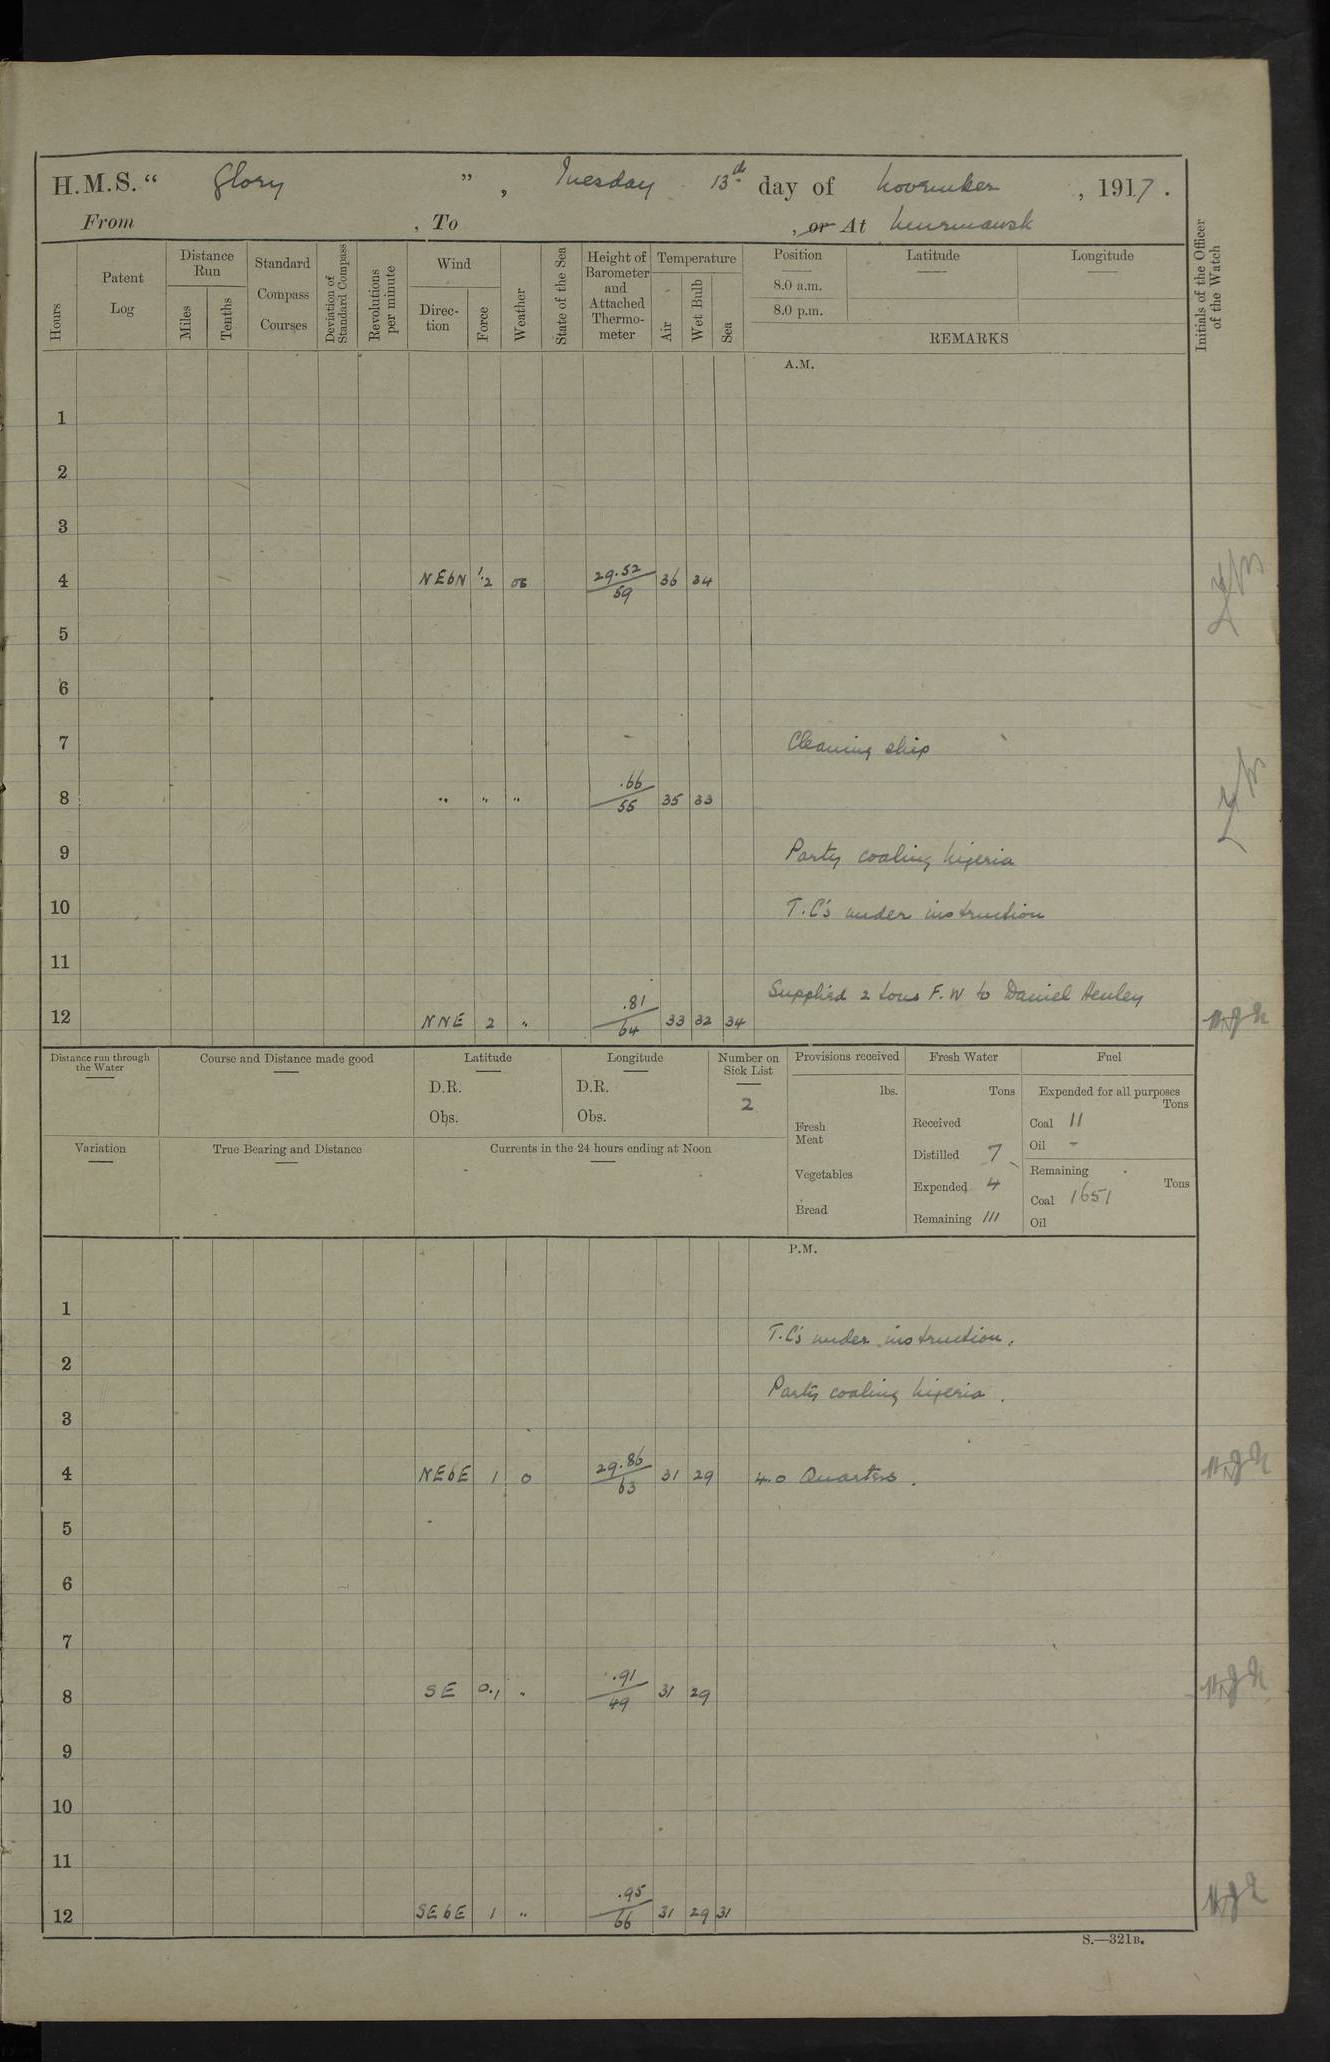 H.M.S. “ Glory ” , Tuesday 13th day of November , 1917 .
From , To , or At Murmansk
Hours
Patent Log
Distance Run
Miles
Tenths
Standard Compass Courses
Deviation of Standard Compass
Revolutions per minute
Wind
Direc- tion
Force
Weather
State of the Sea
Height of Barometer and Attached Thermo- meter
Temperature
Air
Wet Bulb
Sea
Position
8.0 a.m.
8.0 p.m.
Latitude
Longitude
REMARKS
Initials of the Officer of the Watch
A.M.
1
2
3
4 NEbN 1.2 29.52 59 36 34
5
6
7 Cleaning ship
8 " " " .66 55 35 33
9 Party coaling Nigeria
10 T.C's under instruction
11
Supplied 2 tons F.W to Daniel Henley
12 NNE 2 " .81 64 33 32 34
Distance run through the Water
Course and Distance made good
Latitude
D.R.
Obs.
Longitude
D.R.
Obs.
Number on Sick List
2
Provisions received
lbs.
Fresh Meat
Vegetables
Bread
Fresh Water
Tons
Received
Distilled 7
Expended 4
Remaining 111
Fuel
Expended for all purposes
Tons
Coal 11
Oil -
Remaining
Tons
Coal 1651
Oil
Variation
True Bearing and Distance
Currents in the 24 hours ending at Noon
P.M.
1
T.C's under instruction.
2
Party coaling Nigeria .
3
4 NEbE 1 o 29.86 63 31 29 4.0 Quarters .
5
6
7
8 SE 0.1 " .91 49 31 29
9
10
11
12 SEbE 1 " .95 66 31 29 31
S.—321B.